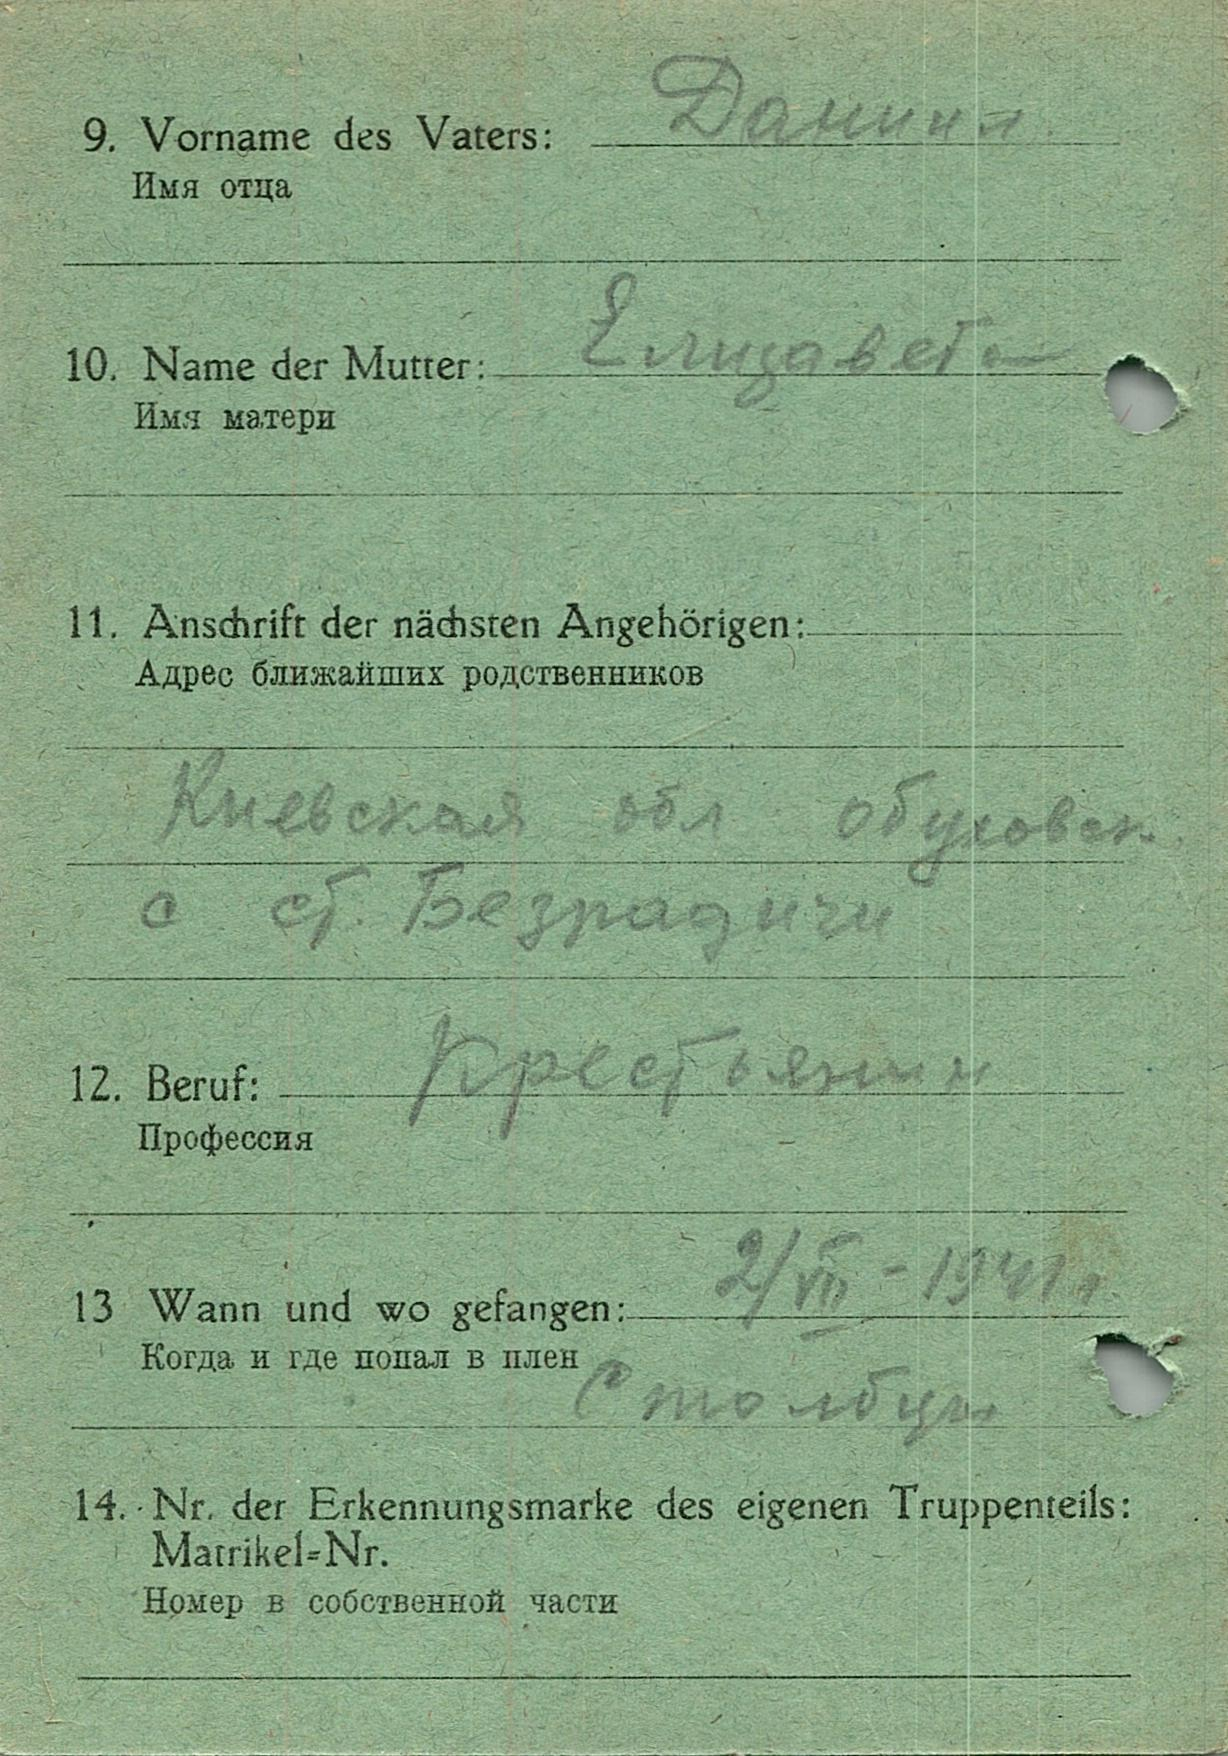 9. Vorname des Vaters: Даниил
Имя отца
10. Name der Mutter: Елизавета
Имя матери
11. Anschrift der nächsten Angehörigen:
Адрес ближайших родственников
Киевская обл обуховск.
с ст. Безрадичи
12. Beruf: Крестьянин
Профессия
13 Wann und wo gefangen: 2/VII - 1941 г
Когда и где попал в плен Столбцы
14. Nr. der Erkennungsmarke des eigenen Truppenteils:
Matrikel=Nr.
Номер в собственной части